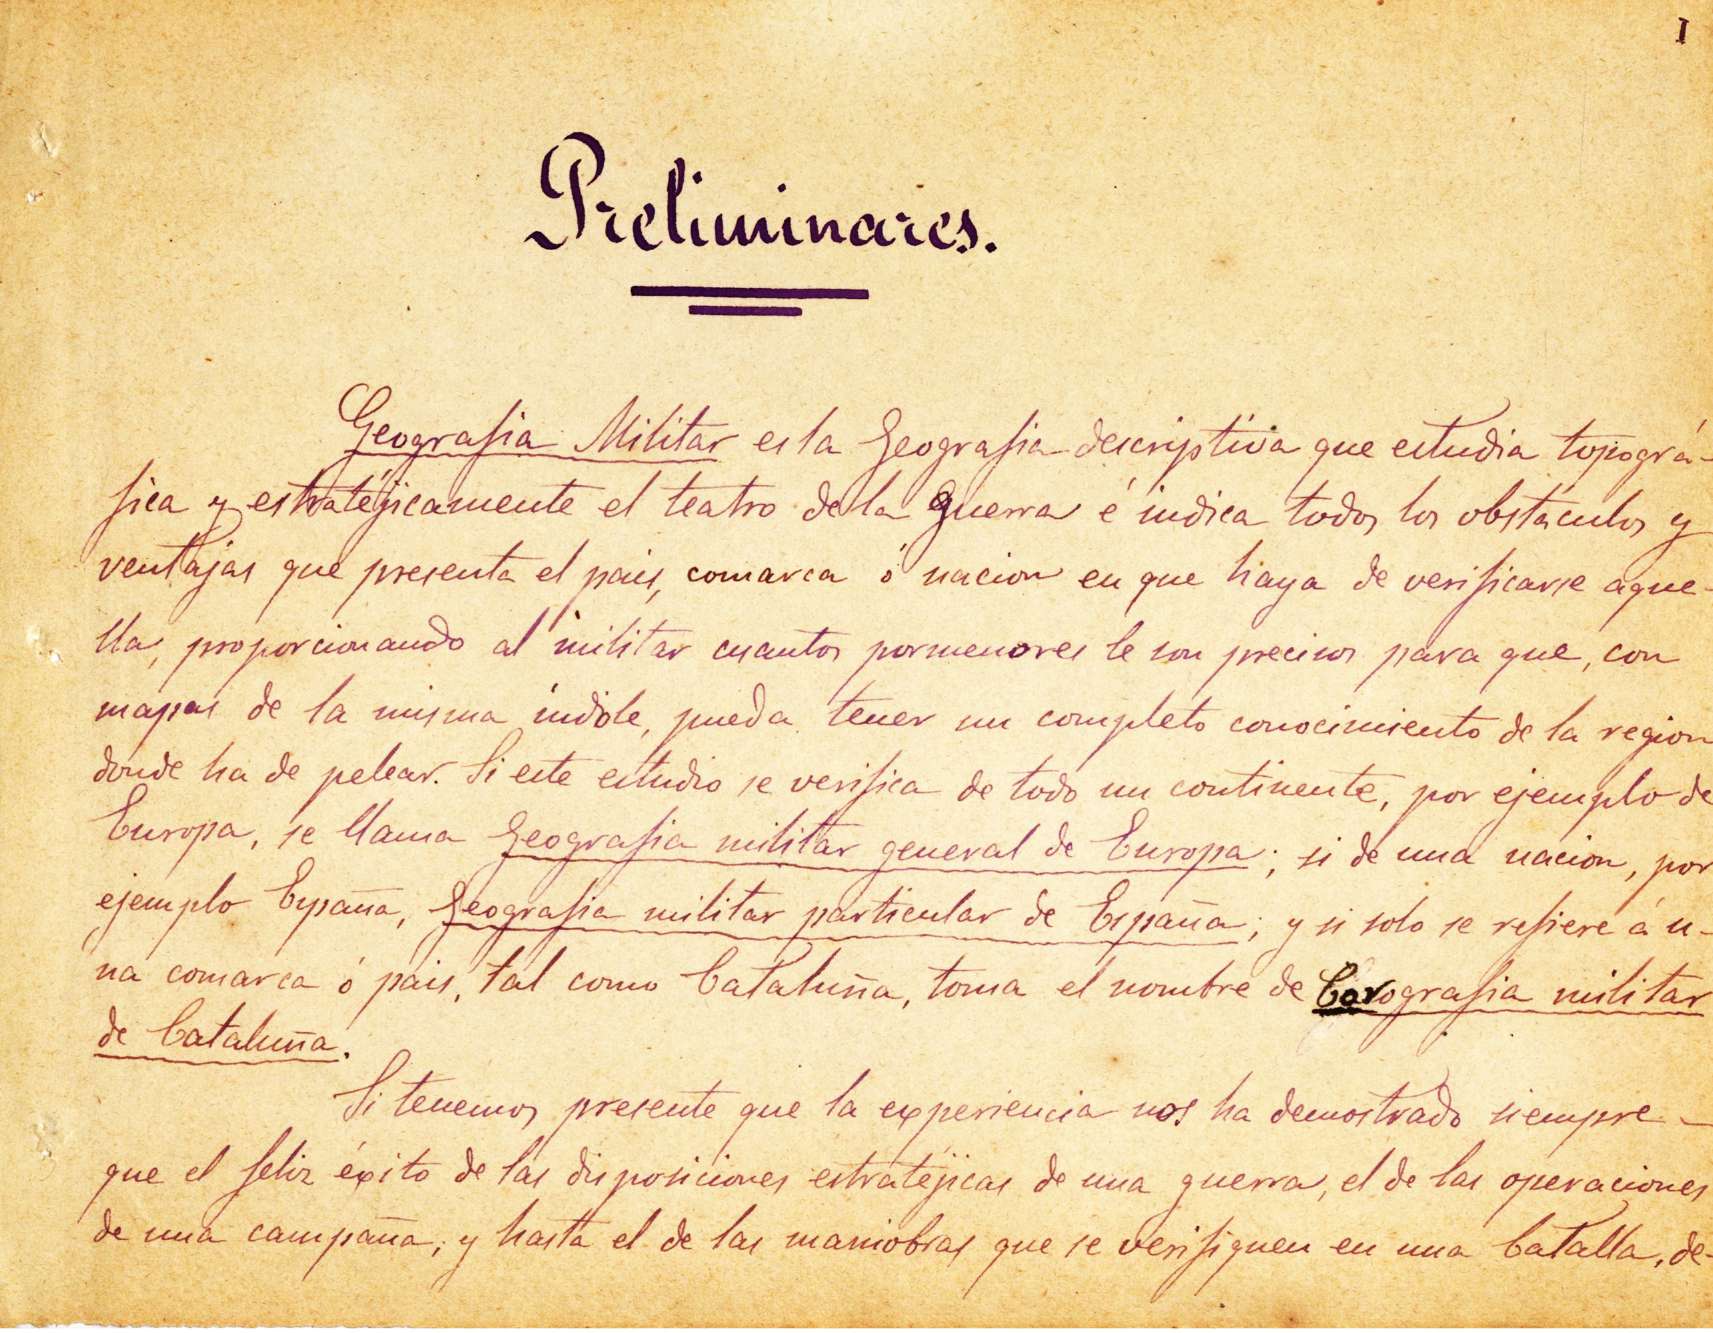 I
Preliminares.
Geografia Militar es la Geografia descriptiva que estudia topográ-
fica y estratéjicamente el teatro de la guerra é indica todos los obstáculos y
ventajas que presenta el pais, comarca ó nacion en que haya de verificarse aque-
lla, proporcionando al militar cuantos pormenores le son precisos para que, con
mapas de la misma índole, pueda tener un completo conocimiento de la region
donde ha de pelear. Si este estudio se verifica de todo un continente, por ejemplo de
Europa, se llama Geografia militar general de Europa; si de una nacion, por
ejemplo España, Geografia militar particular de España; y si solo se refiere á u-
na comarca ó pais, tal como Cataluña, toma el nombre de Corografia militar
de Cataluña.
Si tenemos presente que la experiencia nos ha demostrado siempre
que el feliz éxito de las disposiciones estratéjicas de una guerra, el de las operaciones
de una campaña, y hasta el de las maniobras que se verifiquen en una batalla, de-